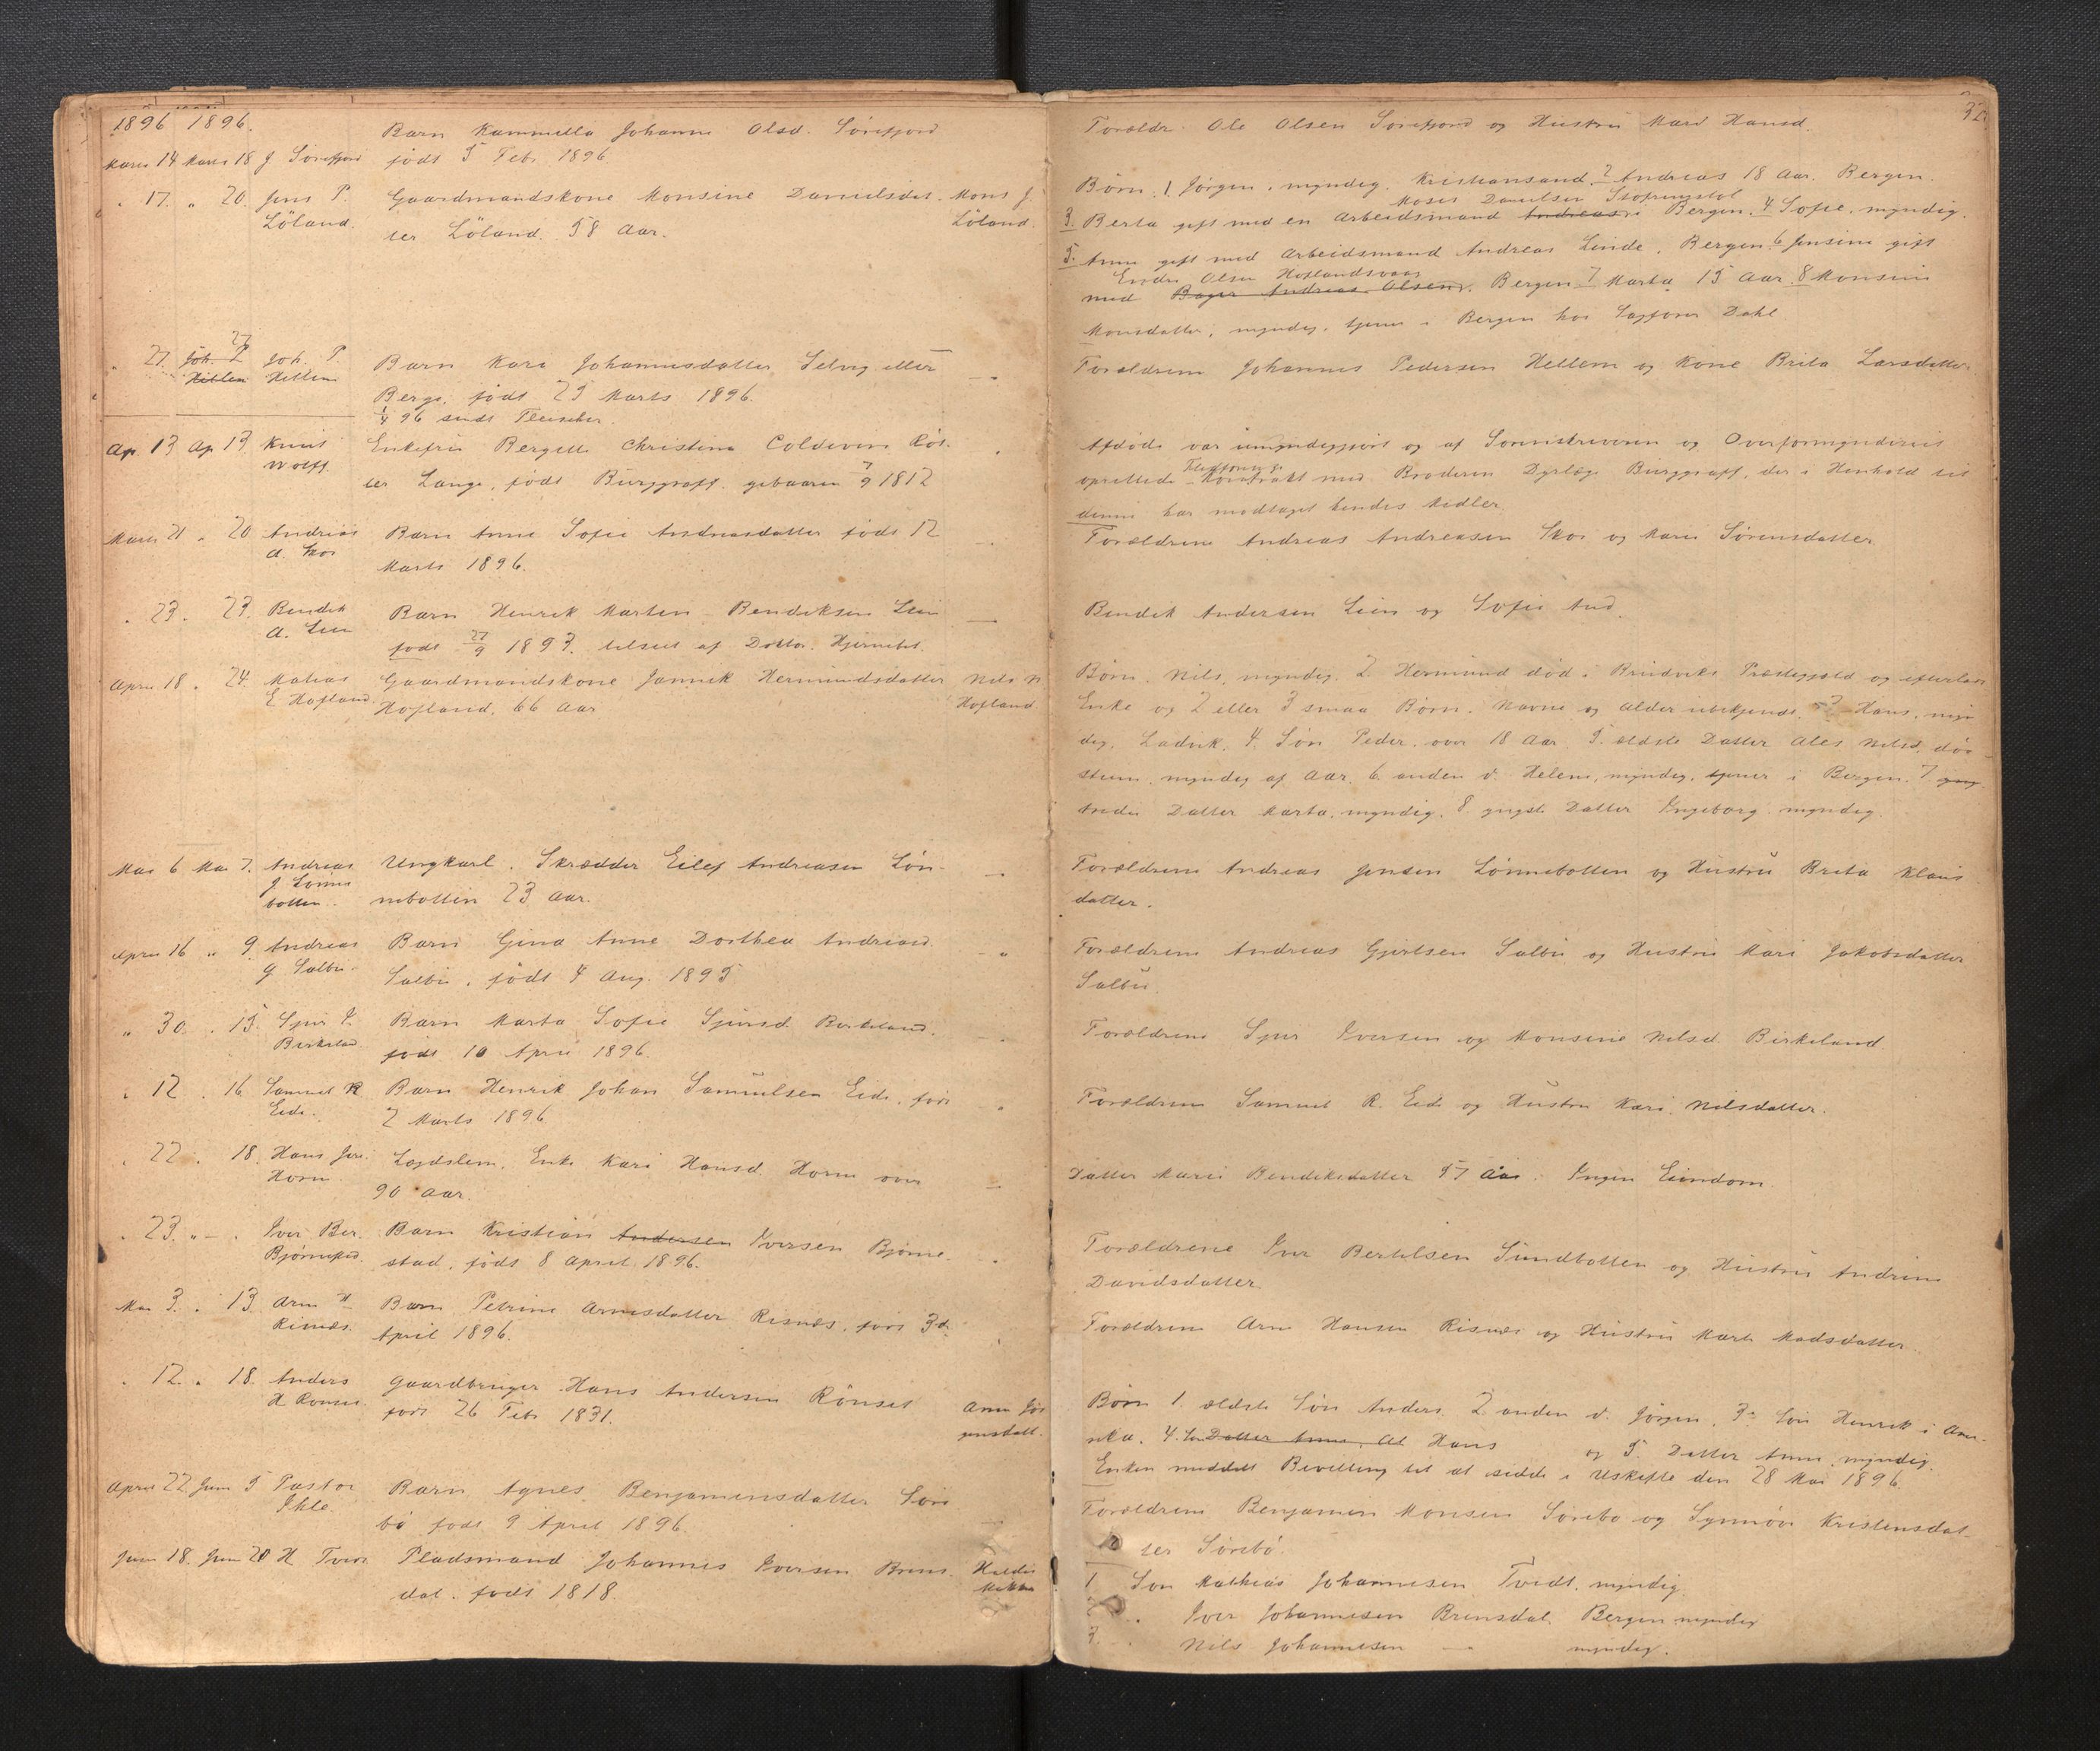 1896 1896.
Barn Kammilla Johanne Olsd. Sörefjord
Marts 14 Marts 18 J Sörefjord födt 5 Feb. 1896.
" 17. " 20. Jens P. Gaardmandskone Monsine Danielsdat- Mons J.
Löland. ter Löland. 58 Aar. Löland.
27
" 27. Joh. P Joh. P. Barn Kari Johannesdatter Selvig eller —"—
Hillen Hellem Berge, födt 23 Marts 1896.
1/4 96 sendt Fleischer.
Ap. 13 Ap 13 Knut Enkefru Bergitte Christine Coldevin
Wolff. ter Lange, födt Burggraff. 7/9 1812
Marts 21 " 20 Andreas Barn Anne Sofie Andreasdatter födt 12 —"—
A. Skor Marts 1896.
" 23. 23. Bendik Barn Henrik Marten Bendiksen Lein —
A. Lein födt 27/9 1893. tilseet af Doktor. Hjernebet.
April 18 " 24. Matias Gaardmandskone Jannik Hermundsdatter Nils N
E Hofland Hofland, 66 Aar Hofland.
Mai 6 Mai 7. Andreas Ungkarl. Skrædder Eilef Andreasen Lön- —"—
J Lönne nebotten 23 Aar.
botten.
April 16 " 9. Andreas Barn Gina Anne Dorthea Andreasd. —"
G Salbu. Salbu. födt 4 Aug. 1895
" 30. . 15. Sjur I. Barn Marta Sofie Sjursd. Birkeland.
Birkelad födt 10 April 1896.
" 12 . 16. Samuel R Barn Henrik Johan Samuelsen Eide. födt "
Eide. 2 Marts 1896
. 22 . 18. Hans Jens. Lægdslem. Enke Kari Hansd. Horn over —
Horn. 90 Aar.
. 23. "—. Iver Ber. Barn Kristian Andersen Iversen Bjørne-
Bjørnestad. stad, födt 8 April 1896.
Mai 3. . 13. Arne H Barn Petrine Arnesdatter Risnæs, födt 3d.
Risnæs. April 1896.
. 12. " 18. Anders Gaardbruger Hans Andersen Rönset Anne Jör
H Rönset. födt 26 Feb. 1831. gensdatt.
April 22 Juni 5 Pastor Barn Agnes Benjaminsdatter Söre
Ihle. bö födt 9 April 1896.
Juni 18. Juni 20 H Pladsmand Johannes Iversen Brens-
dal. födt 1818.
32.
Forældr. Ole Olsen Sörefjord og Hustru Mari Hansd.
Börn. 1 Jörgen, myndig. Kristiansand. 2 Andreas 18 Aar. Bergen.
Moses Danielsen
3. Berta gift med en Arbeidsmand Andreas i Bergen. 4 Sofie, myndig.
5. Anne gift med Arbeidsmand Andreas Linde, Bergen. 6 Jensine gift
Endre Olsen
med Bager Andreas Olsen. Bergen. 7 Marta 15 Aar. 8 Monsine
Monsdatter, myndig, tjener i Bergen hos Sagförer Dahl
Forældrene Johannes Pedersen Hellem og Kone Brita Larsdatter.
Afdöde var umyndiggjort og af Sorenskriveren og Overformynderiet
oprettede Kontrakt med Broderen Dyrlæge Burggraff, der i Henhold til
denne har modtaget hendes Midler.
Forældrene Andreas Andreasen Skor og Mari Sörensdatter.
Bendik Andersen Lein og Sofie And
Börn. Nils, myndig. 2. Hermund död i Brudviks Præstegjeld og efterlad
Enke og 2 eller 3 smaa Börn. Navne og Alder ubekjendt. 3 Hans, myn
dig, Ladvik. 4. Sön Peder, over 18 Aar. 5. ældste Datter Ales Nilsd. döv
stum. myndig af Aar. 6 anden d. Helene, myndig, tjener i Bergen. 7 yng
tredie Datter Marta, myndig. 8 yngste Datter Ingeborg. myndig.
Forældrene Andreas Jensen Lönnebotten og Hustru Brita Klaus
datter.
Forældrene Andreas Gjertsen Salbu og Hustru Mari Jakobsdatter
Salbu.
Forældrene Sjur Iversen og Monsine Nilsd. Birkeland.
Forældrene Samuel R. Eide og Hustru Kari Nilsdatter.
Datter Marie Bendiksdatter 57 Aar. Ingen Eiendom.
Forældrene Iver Bertelsen Sundbotten og Hustru Andrine
Davidsdatter.
Forældrene Arne Hansen Risnæs og Hustru Marta Madsdatter.
Börn 1. ældste Sön Anders 2 anden d. Jörgen. 3. Sön Henrik i Ame-
rika. 4. Sön Datter Anne, Al Hans og 5 Datter Anne, myndig.
Enken meddelt Bevilling til at sidde i Uskifte den 28 Mai 1896.
Forældrene Benjamin Monsen Sörebö og Synnöve Kristensdat
ter Sörebö.
1 Sön Mathias Johannesen Tvedt, myndig.
2 " Iver Johannesen Brensdal. Bergen myndig
3. " Nils Johannesen —"— myndig.